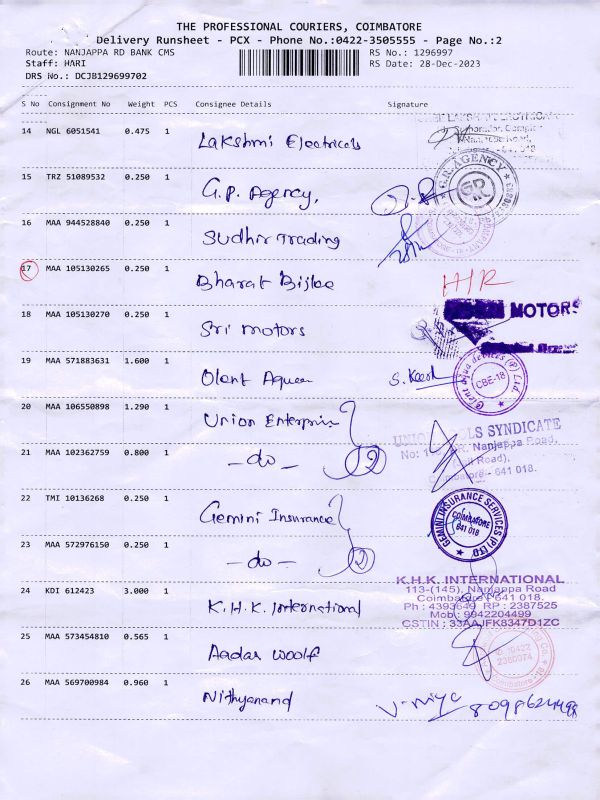 THE PROFESSIONAL COURIERS, COIMBATORE
Delivery Runsheet - PCX - Phone No.:0422-3505555 - Page No.:2
Route: NANJAPPA RD BANK CMS RS No.: 1296997
Staff: HARI RS Date: 28-Dec-2023
DRS No.: DCJB129699702
S No Consignment No Weight PCS Consignee Details Signature
14 NGL 6051541 0.475 1 Lakshmi Electricals
641 018
15 TRZ 51089532 0.250 1 G.P. Agency,
G.R. AGENCY
GR
16 MAA 944528840 0.250 1 Sudhir Trading
17 MAA 105130265 0.250 1 Bharat Bijlee H/R
18 MAA 105130270 0.250 1 Sri motors
MOTORS
19 MAA 571883631 1.600 1 Olent Aquea
CBE-18
20 MAA 106550898 1.290 1 Union Enterprise
SYNDICATE
Nanjappa Road,
21 MAA 102362759 0.800 1 - do - 2
Coimbatore - 641 018.
22 TMI 10136268 0.250 1 Gemini Insurance
GEMINI INSURANCE SERVICES (P) LTD.
COIMBATORE
641 018
23 MAA 572976150 0.250 1 - do - 2
24 KDI 612423 3.000 1 K.H.K. International
K.H.K. INTERNATIONAL
113-(145), Nanjappa Road
Coimbatore - 641 018.
Ph : 4393649 RP : 2387525
Mob : 9942204499
GSTIN : 33AAJFK8347D1ZC
25 MAA 573454810 0.565 1 Aadar Woolf
0422
2380074
26 MAA 569700984 0.960 1 Nithyanand